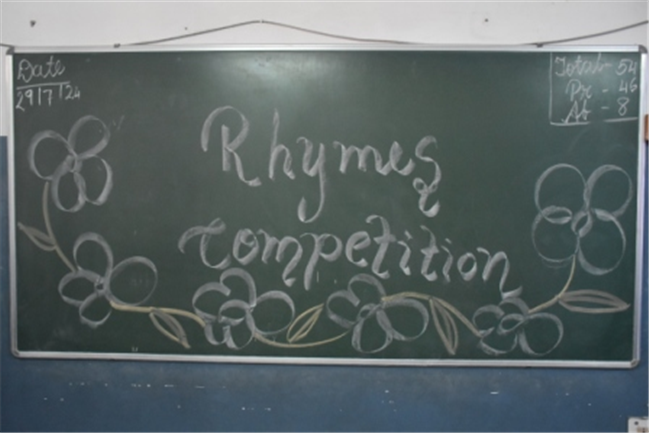 Date
29/7/24
Total - 54
Pr - 46
Ab - 8
Rhymes
Competition